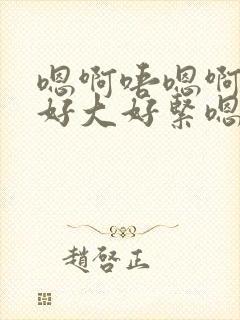 嗯啊唔嗯啊
好大好緊嗯
趙啓正